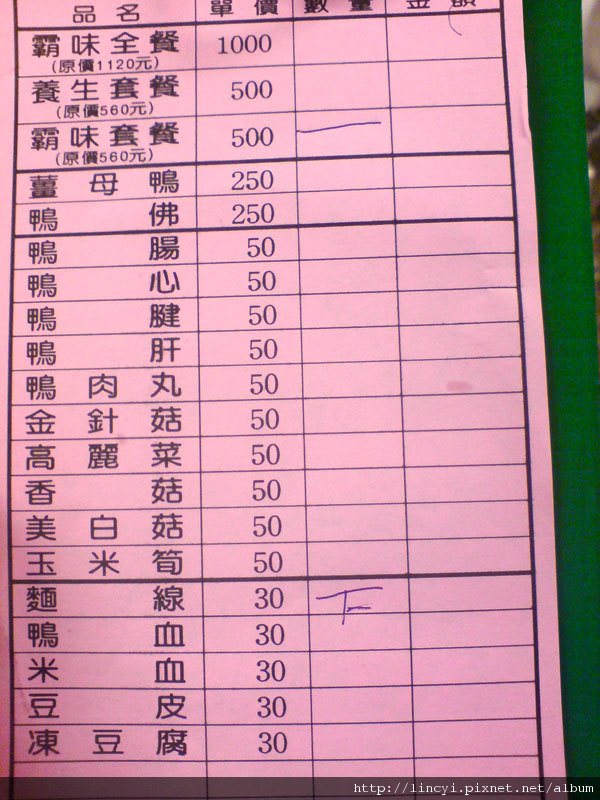 品名 單價 數量 金額
霸味全餐 1000
(原價1120元)
養生套餐 500
(原價560元)
霸味套餐 500 一
(原價560元)
薑母鴨 250
鴨佛 250
鴨腸 50
鴨心 50
鴨腱 50
鴨肝 50
鴨肉丸 50
金針菇 50
高麗菜 50
香菇 50
美白菇 50
玉米筍 50
麵線 30
鴨血 30
米血 30
豆皮 30
凍豆腐 30
http://lincyi.pixnet.net/album